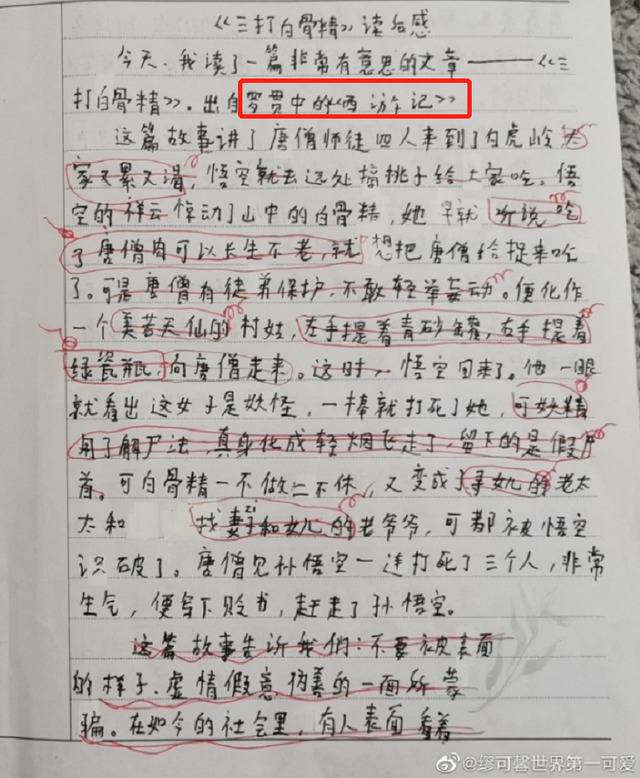 《三打白骨精》读后感
今天，我读了一篇非常有意思的文章——《三
打白骨精》。出自罗贯中的《西游记》
这篇故事讲了唐僧师徒四人来到了白虎岭，大
家又累又渴，悟空就去远处摘桃子给大家吃，悟
空的祥云惊动了山中的白骨精，她早就听说吃
了唐僧肉可以长生不老，就想把唐僧给捉来吃
了。可是唐僧有徒弟保护，不敢轻举妄动。便化作
一个美若天仙的村姑，左手提着青砂罐，右手提着
绿瓷瓶，向唐僧走来。这时，悟空回来了。他一眼
就看出这女子是妖怪，一棒就打死了她，可妖精
用了解尸法，真身化成轻烟飞走了，留下的是假尸
首。可白骨精一不做二不休，又变成了寻女儿的老太
太和 找妻子和女儿的老爷爷，可都被悟空
识破了。唐僧见孙悟空一连打死了三个人，非常
生气，便写下贬书，赶走了孙悟空。
这篇故事告诉我们：不要被表面
的样子、虚情假意伪善的一面所蒙
骗。在如今的社会里，有人表面看着
@缪可馨世界第一可爱